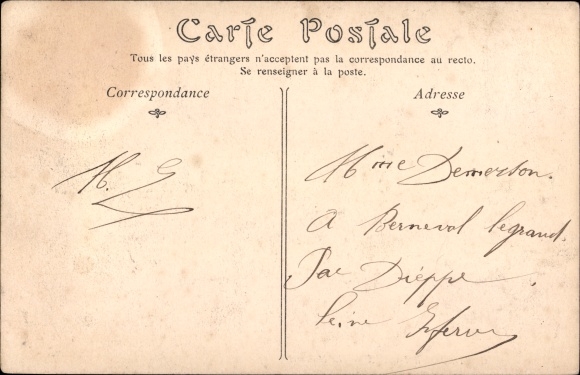 Carte Postale
Tous les pays étrangers n'acceptent pas la correspondance au recto.
Se renseigner à la poste.
Correspondance
Adresse
H. G
Mme Demerson.
A Berneval legrand.
Par Dieppe.
Seine Inferieu